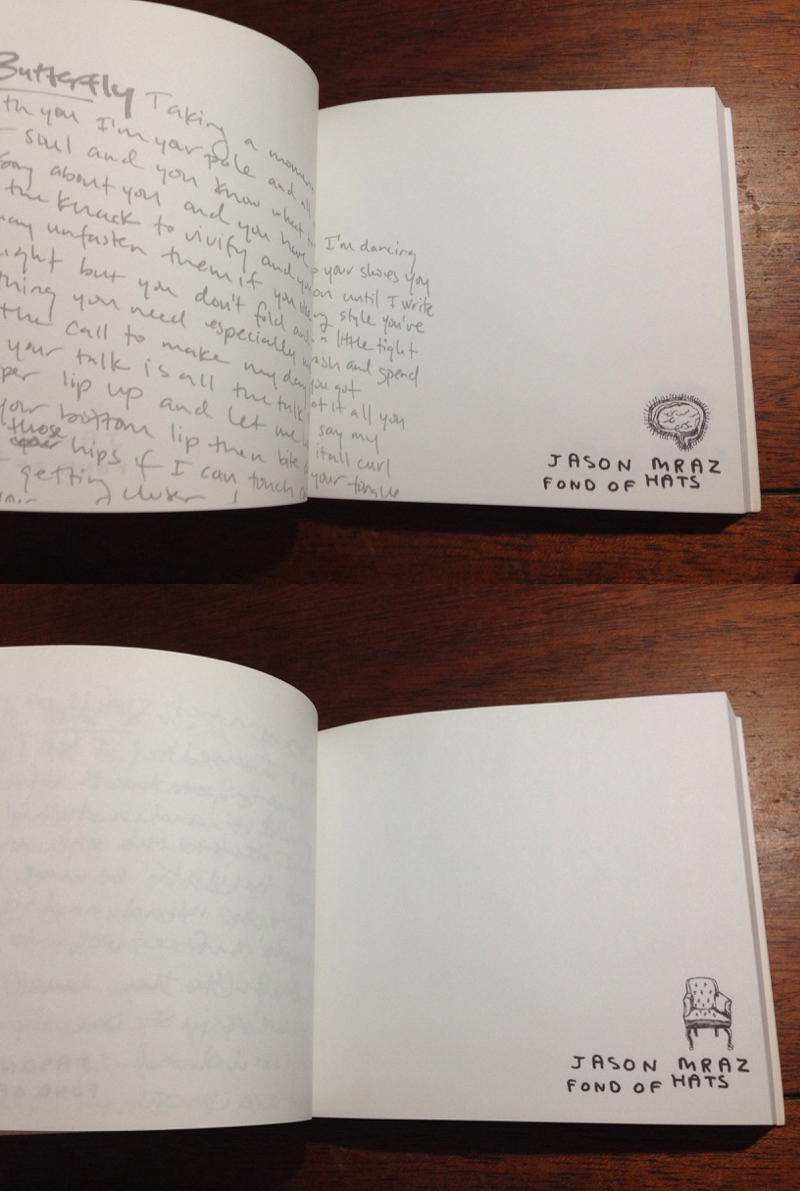 Butterfly Taking a moment
th you I'm your pole and all
soul and you know what
song about you and you have
the knack to vivify and you
may unfasten them if you
ight but you don't fold and
thing you need especially
the call to make my day
your talk is all the talk
per lip up and let me
your bottom lip then bite
those hips if I can touch
getting closer
I'm dancing
your shoes you
on until I write
style you've
a little tight
and spend
you got
of it all you
say my
it all curl
your tongue
JASON MRAZ
FOND OF HATS
JASON MRAZ
FOND OF HATS